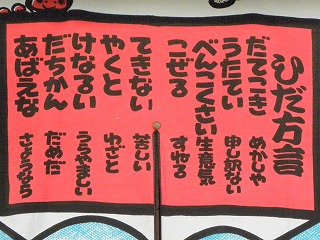 ひだ方言
だてこき めかしや
うたてい 申し訳ない
べんこくさい 生意気
こぜる すねる
てきない 苦しい
やくと わざと
けなるい うらやましい
だちかん だめだ
あばえな さようなら